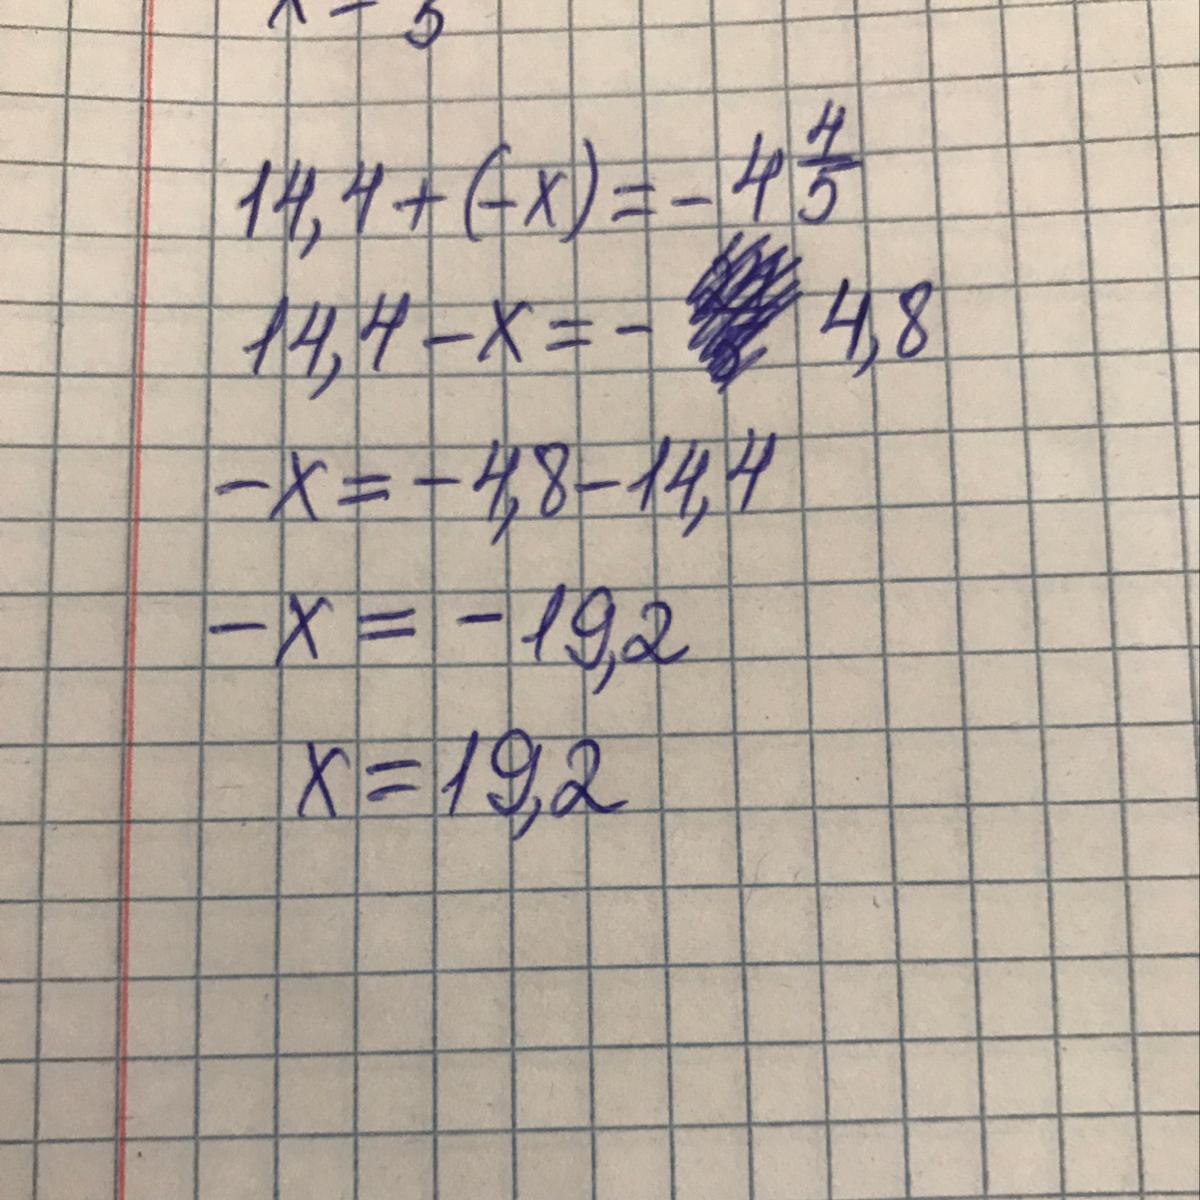 x = 5
14,4 + (-x) = - 4 4/5
14,4 - x = - 4,8
-x = - 4,8 - 14,4
-x = - 19,2
x = 19,2